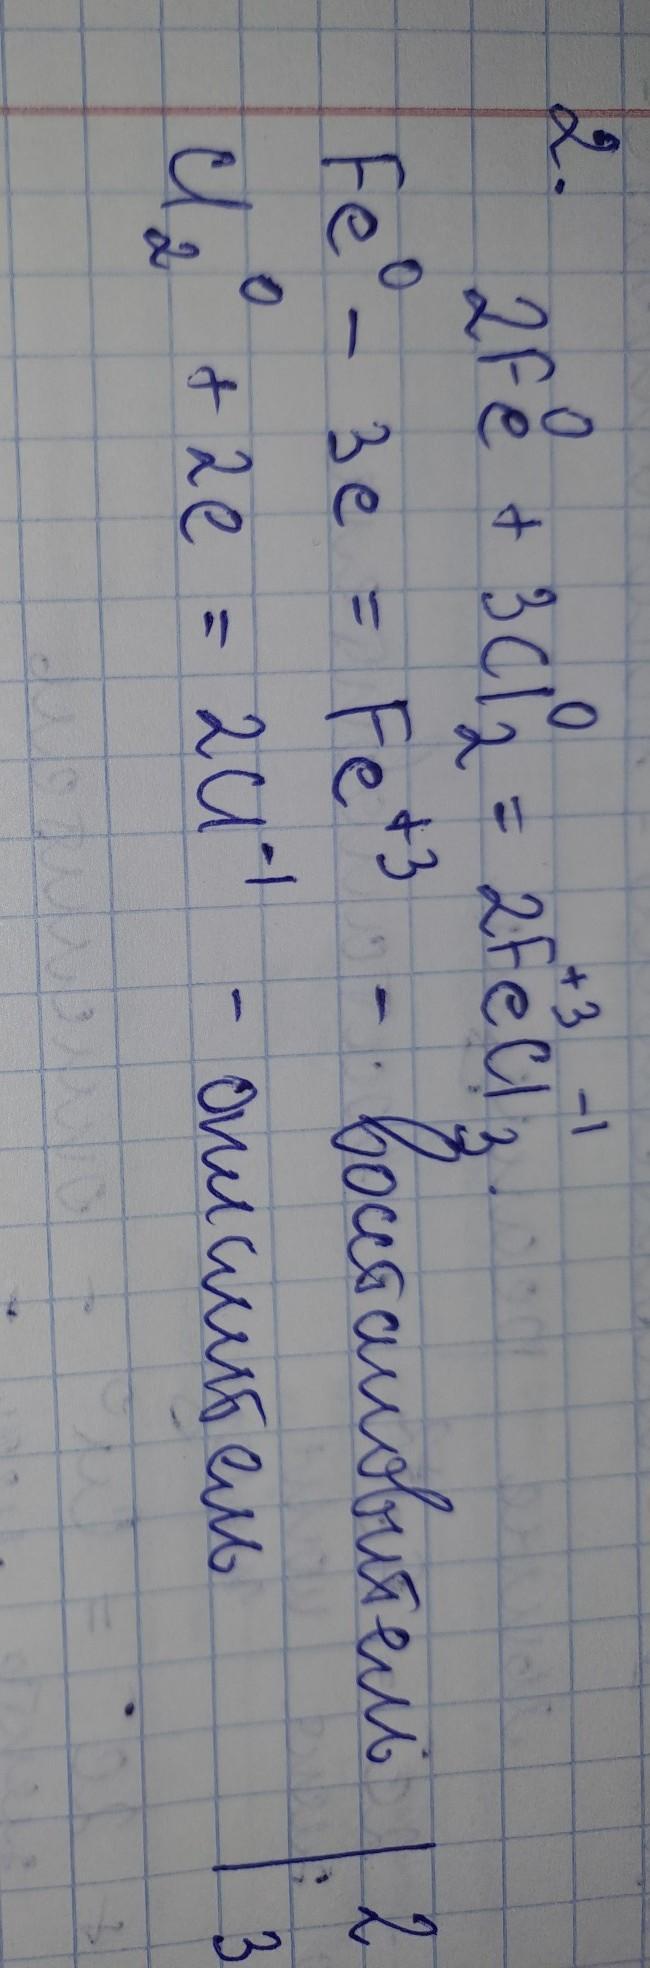 2.
2Fe⁰ + 3Cl₂⁰ = 2Fe⁺³Cl₃⁻¹.
Fe⁰ - 3e = Fe⁺³ - восстановитель | 2
Cl₂⁰ + 2e = 2Cl⁻¹ - окислитель | 3